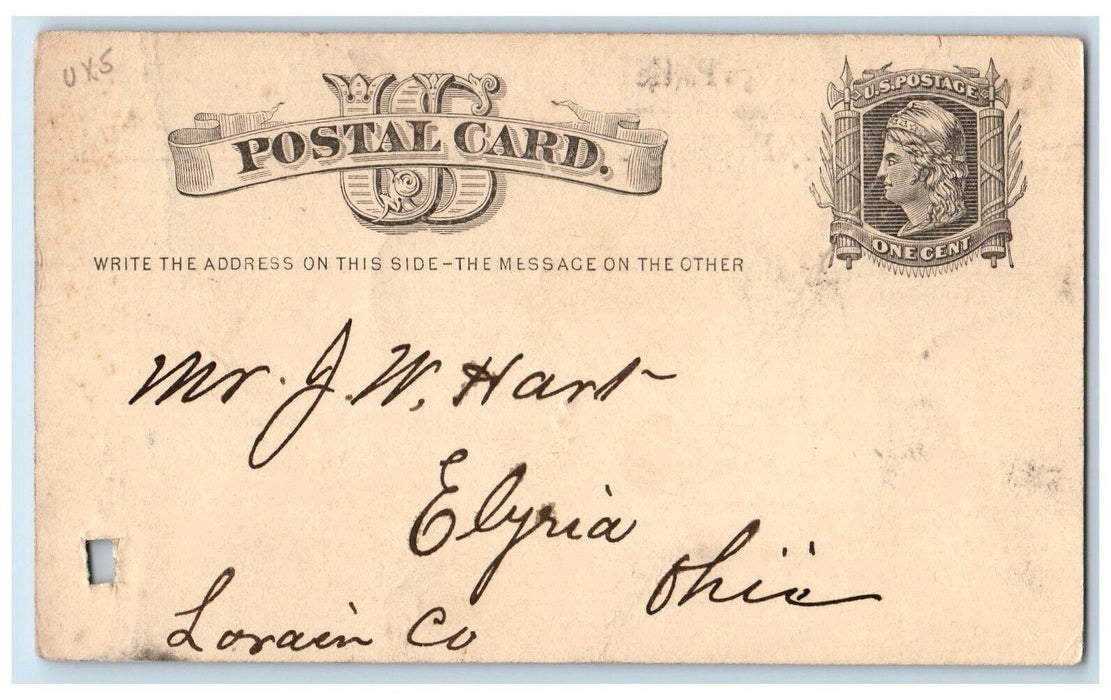 UX5
US
POSTAL CARD.
U.S. POSTAGE
ONE CENT
WRITE THE ADDRESS ON THIS SIDE-THE MESSAGE ON THE OTHER
Mr. J. W. Hart
Elyria
Ohio
Lorain Co